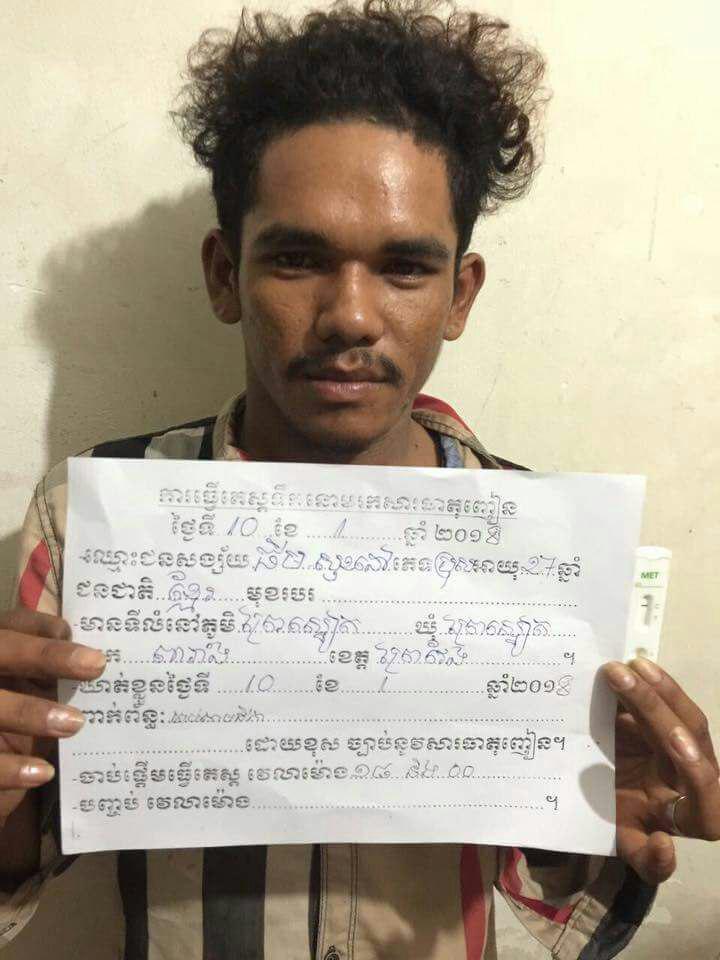 ការធ្វើតេស្តទឹកនោមរកសារធាតុញៀន
ថ្ងៃទី 10 ខែ 1 ឆ្នាំ ២០១៨
-ឈ្មោះជនសង្ស័យ ភេទ ប្រុស អាយុ 27 ឆ្នាំ
ជនជាតិ ខ្មែរ មុខរបរ
-មានទីលំនៅភូមិ ឃុំ
ខេត្ត ។
-ឃាត់ខ្លួនថ្ងៃទី 10 ខែ 1 ឆ្នាំ២០១៨
ពាក់ព័ន្ធ:
ដោយខុស ច្បាប់នូវសារធាតុញៀន។
-ចាប់ផ្តើមធ្វើតេស្ត វេលាម៉ោង
-បញ្ចប់ វេលាម៉ោង ។
MET